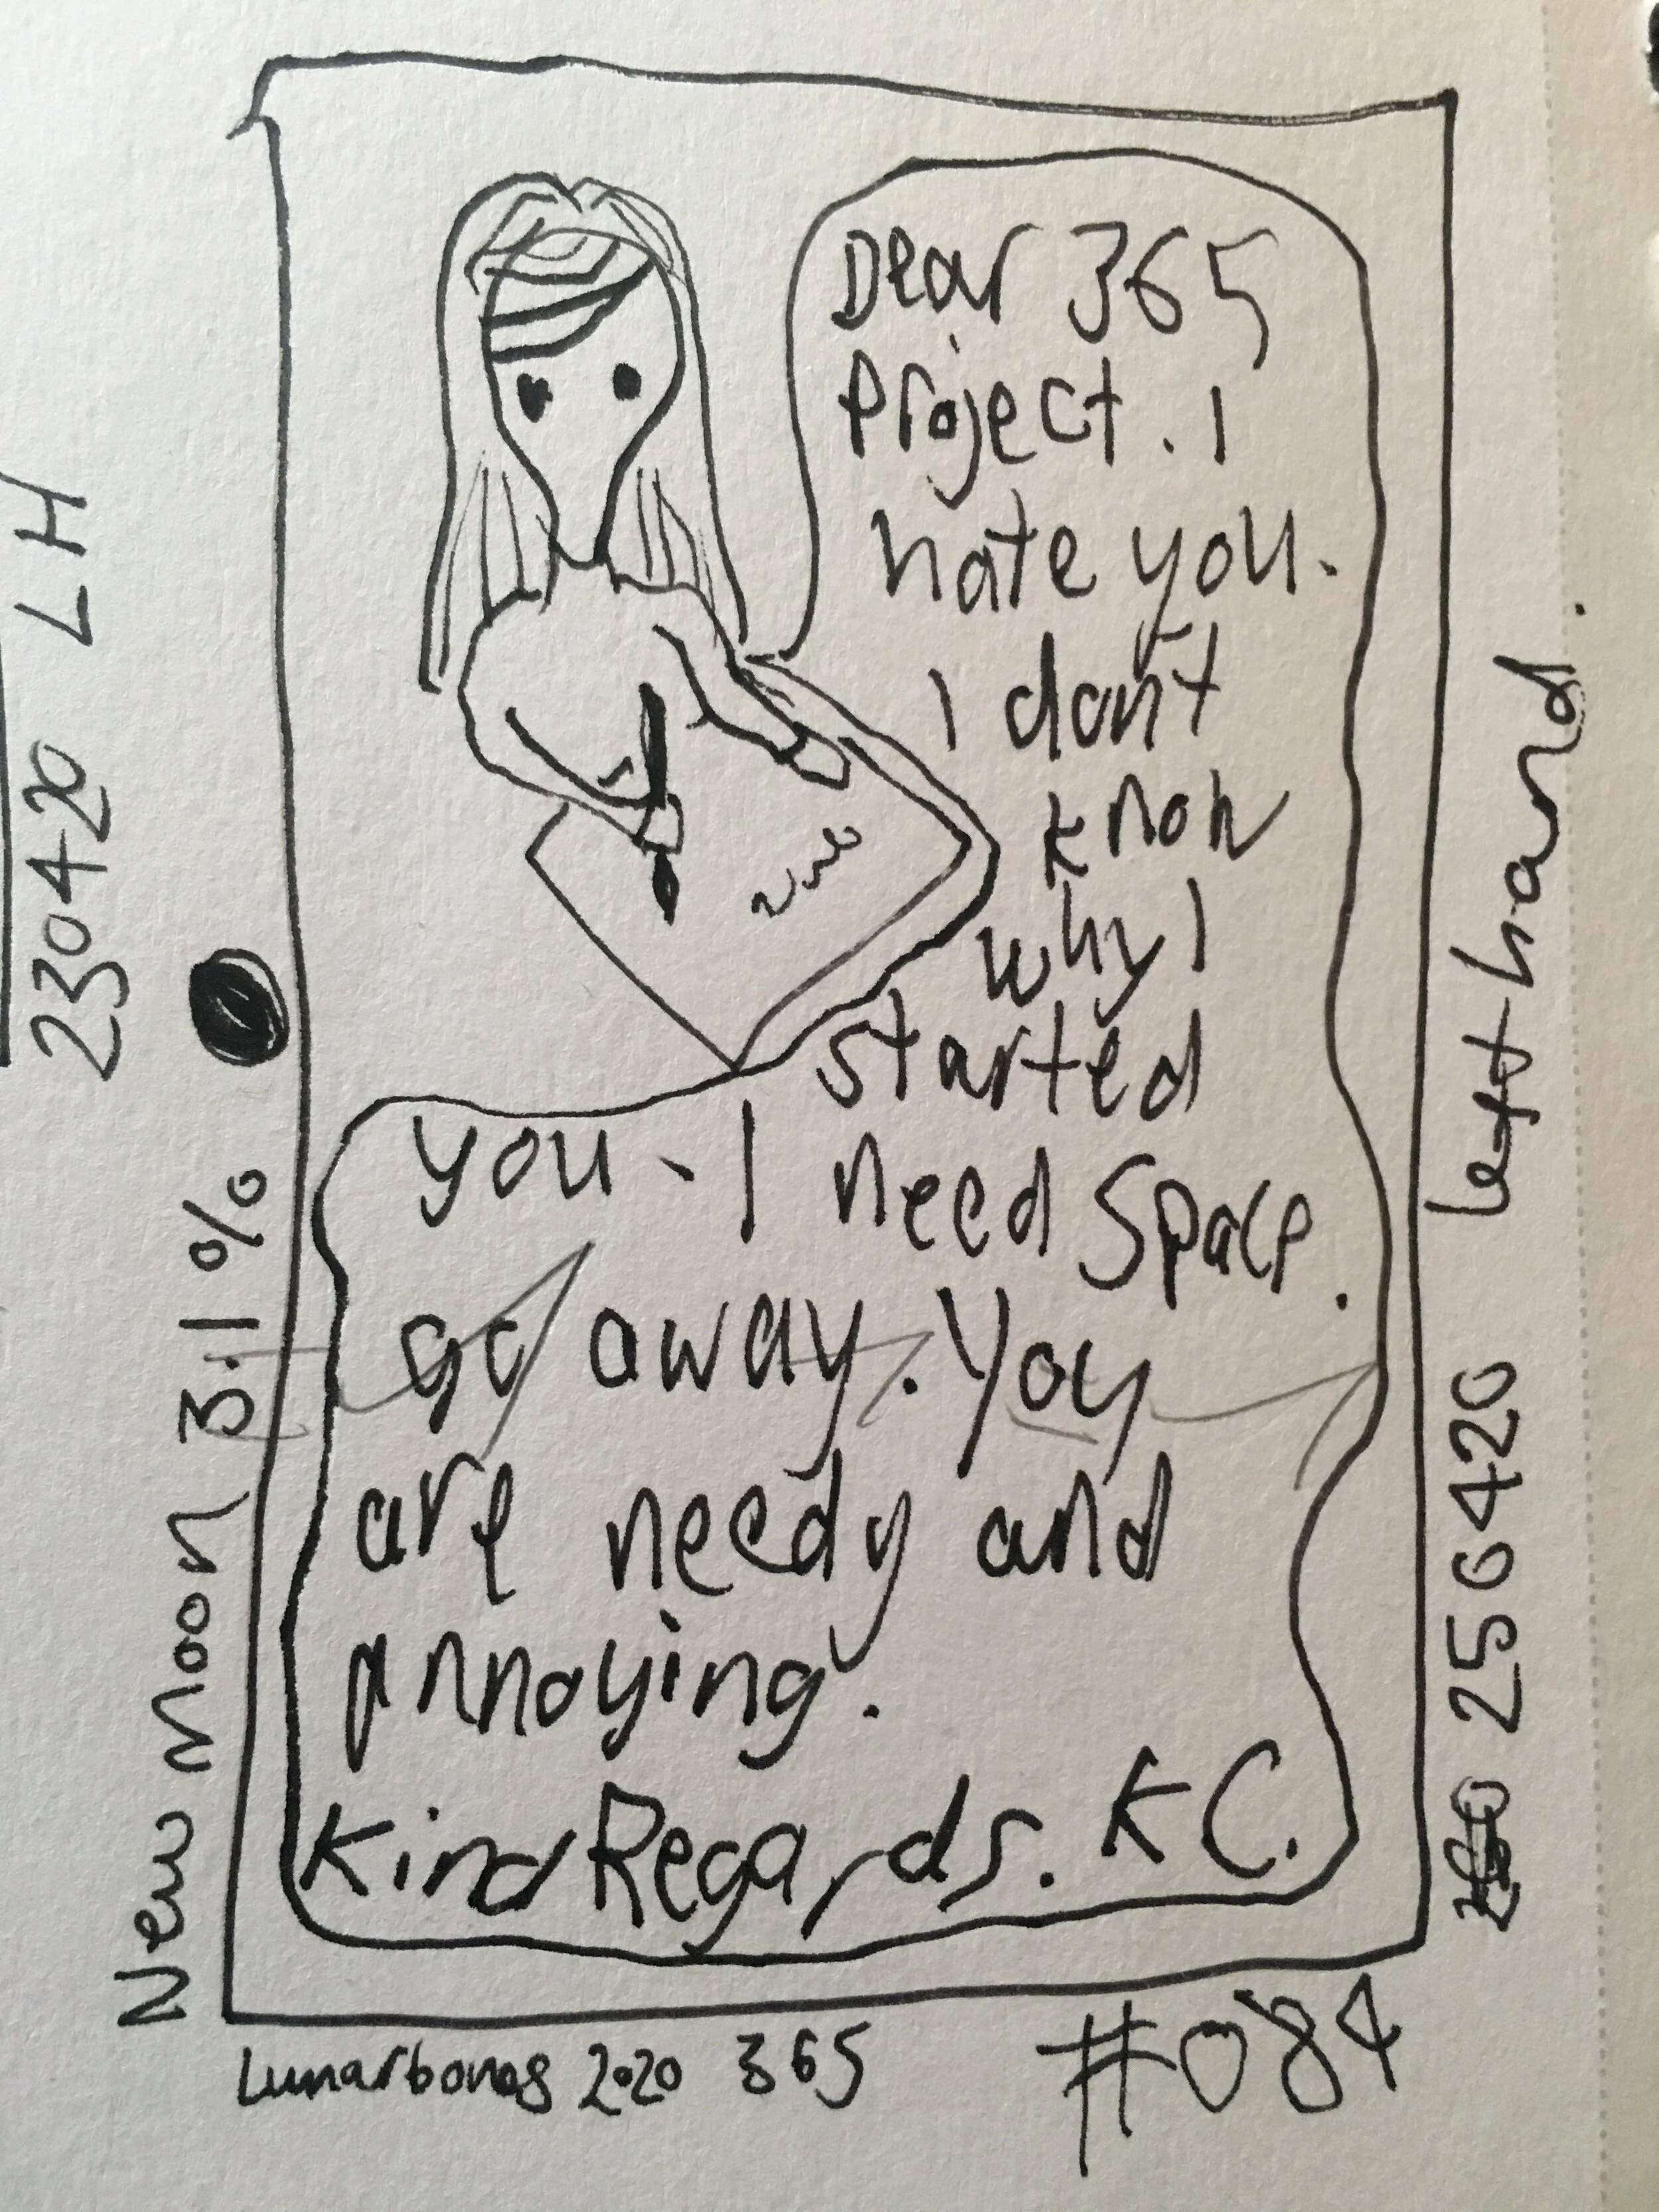 Dear 365
Project. I
hate you.
I don't
know
why I
started
you - I need space.
go away. You
are needy and
annoying.
Kind Regards. KC.
Lunarbones 2020 365
#084
New Moon 3.1%
230420 LH
250420 left hand.